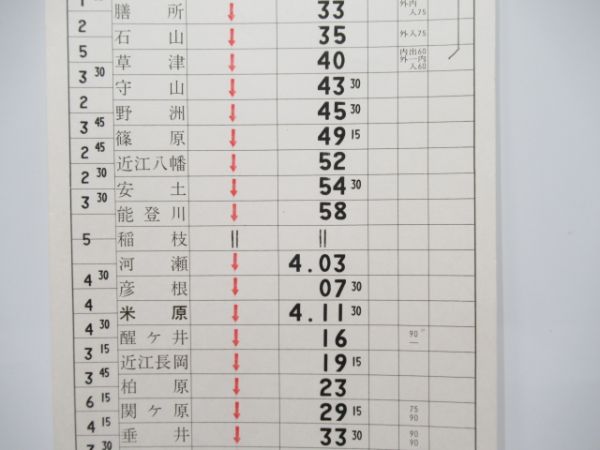 1
膳所 ↓ 33 外内 入75
2
石山 ↓ 35 外入75
5
草津 ↓ 40 内出60 外一内 入60
3 30
守山 ↓ 43 30
2
野洲 ↓ 45 30
3 45
篠原 ↓ 49 15
2 45
近江八幡 ↓ 52
2 30
安土 ↓ 54 30
3 30
能登川 ↓ 58
稲枝 || ||
5
河瀬 ↓ 4.03
4 30
彦根 ↓ 07 30
4
米原 ↓ 4.11 30
4 30
醒ケ井 ↓ 16 90 —
3 15
近江長岡 ↓ 19 15
3 45
柏原 ↓ 23
6 15
関ケ原 ↓ 29 15 75 90
4 15
垂井 ↓ 33 30 90 90